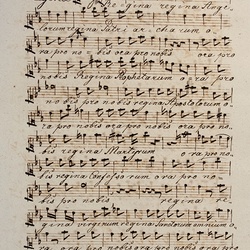 Regina regina Ange
lorum regina Patri ar charum o
ra pro no bis ora pro nobis ora pro
nobis Regina Prophetarum ora pro
no bis pro nobis regina Apostolorum o
ra pro nobis ora pro nobis ora pro no
bis regina Martyrum ora pro no
bis regina Confesso rum ora pro no
bis regina re
gina virginum regina Sanctorum omnium o
ra ora pro nobis ora pro nobis ora pro